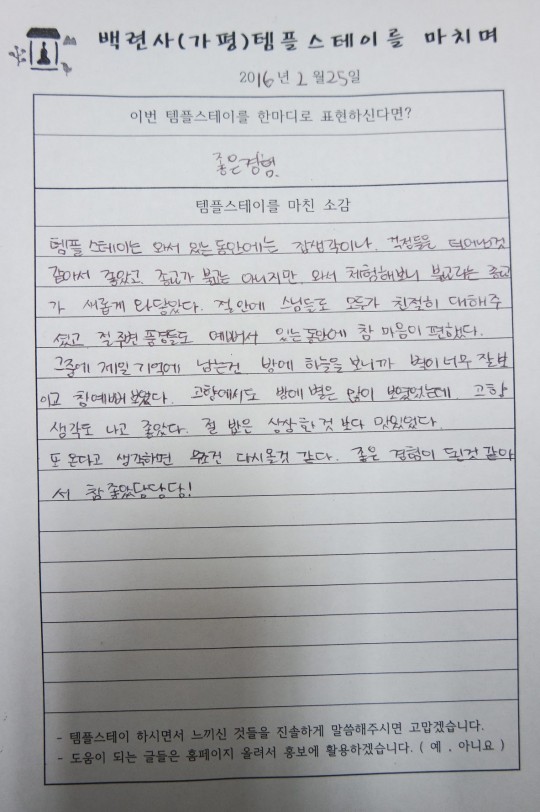 백련사(가평)템플스테이를 마치며
2016년 2월25일
이번 템플스테이를 한마디로 표현하신다면?
좋은경험.
템플스테이를 마친 소감
템플스테이는 와서 있는동안에는 잡생각이나, 걱정들을 떠나간것
같아서 좋았고, 종교가 불교는 아니지만, 와서 체험해보니 불교라는 종교
가 새롭게 와닿았다. 절안에 스님들도 모두가 친절히 대해주
셨고 절주변 풍경들도 예뻐서 있는동안에 참 마음이 편했다.
그중에 제일 기억에 남는건 밤에 하늘을 보니까 별이 너무 잘보
이고 참예뻐 보였다. 고향에서도 밤에 별은 많이 보였었는데 고향
생각도 나고 좋았다. 절 밥은 상상한 것 보다 맛있었다.
또 온다고 생각하면 무조건 다시올것 같다. 좋은 경험이 된것 같아
서 참 좋았당당당!
- 템플스테이 하시면서 느끼신 것들을 진솔하게 말씀해주시면 고맙겠습니다.
- 도움이 되는 글들은 홈페이지 올려서 홍보에 활용하겠습니다. ( 예 , 아니요 )